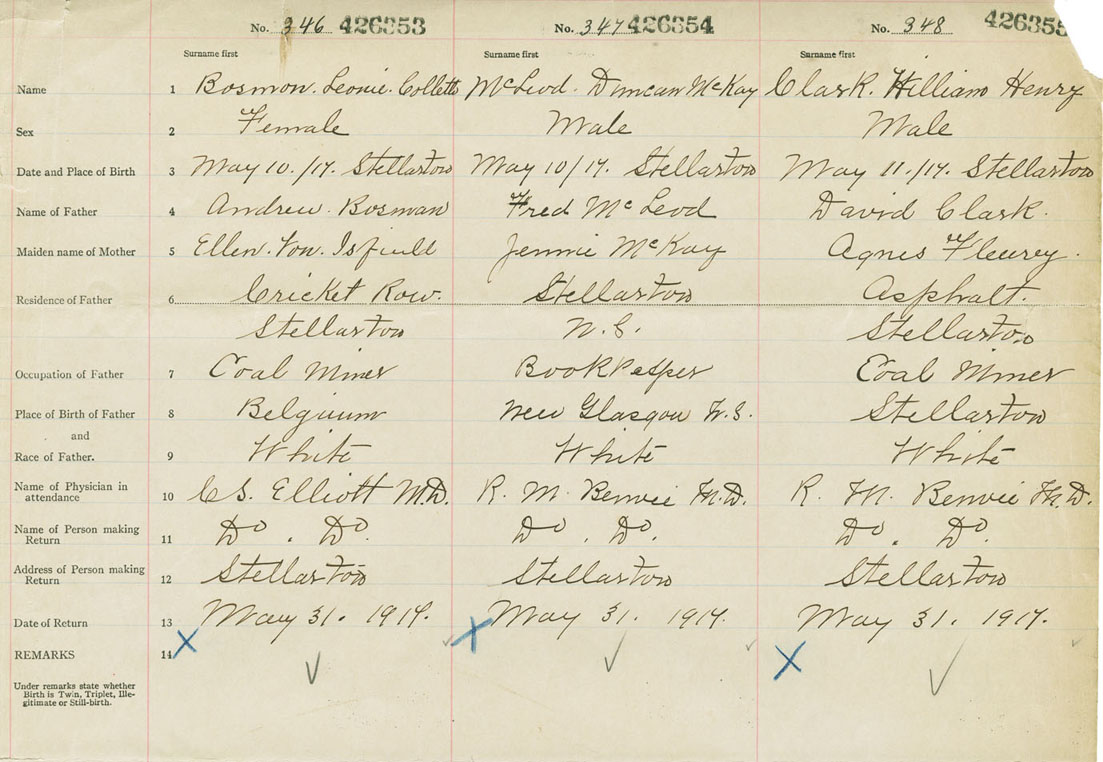 No. 346 426353 No. 347 426354 No. 348 426355
Surname first Surname first Surname first
Name 1 Bosmon. Leonie. Collette McLeod. Duncan McKay Clark. William Henry
Sex 2 Female Male Male
Date and Place of Birth 3 May 10./17. Stellarton May 10/17. Stellarton May 11./17. Stellarton
Name of Father 4 Andrew. Bosman Fred McLeod David Clark.
Maiden name of Mother 5 Ellen. Von. Jennie McKay Agnes Fleurey.
Residence of Father 6 Cricket Row. Stellarton Asphalt.
Stellarton N.S. Stellarton
Occupation of Father 7 Coal Miner BookKeeper Coal Miner
Place of Birth of Father 8 Belgium New Glasgow N.S. Stellarton
and
Race of Father. 9 White White White
Name of Physician in
attendance 10 C S. Elliott M.D. R. M. Benvie M.D. R. M. Benvie M.D.
Name of Person making
Return 11 Do. Do. Do. Do. Do. Do.
Address of Person making
Return 12 Stellarton Stellarton Stellarton
Date of Return 13 May 31. 1917. May 31. 1917. May 31. 1917.
REMARKS 14
Under remarks state whether
Birth is Twin, Triplet, Ille-
gitimate or Still-birth.